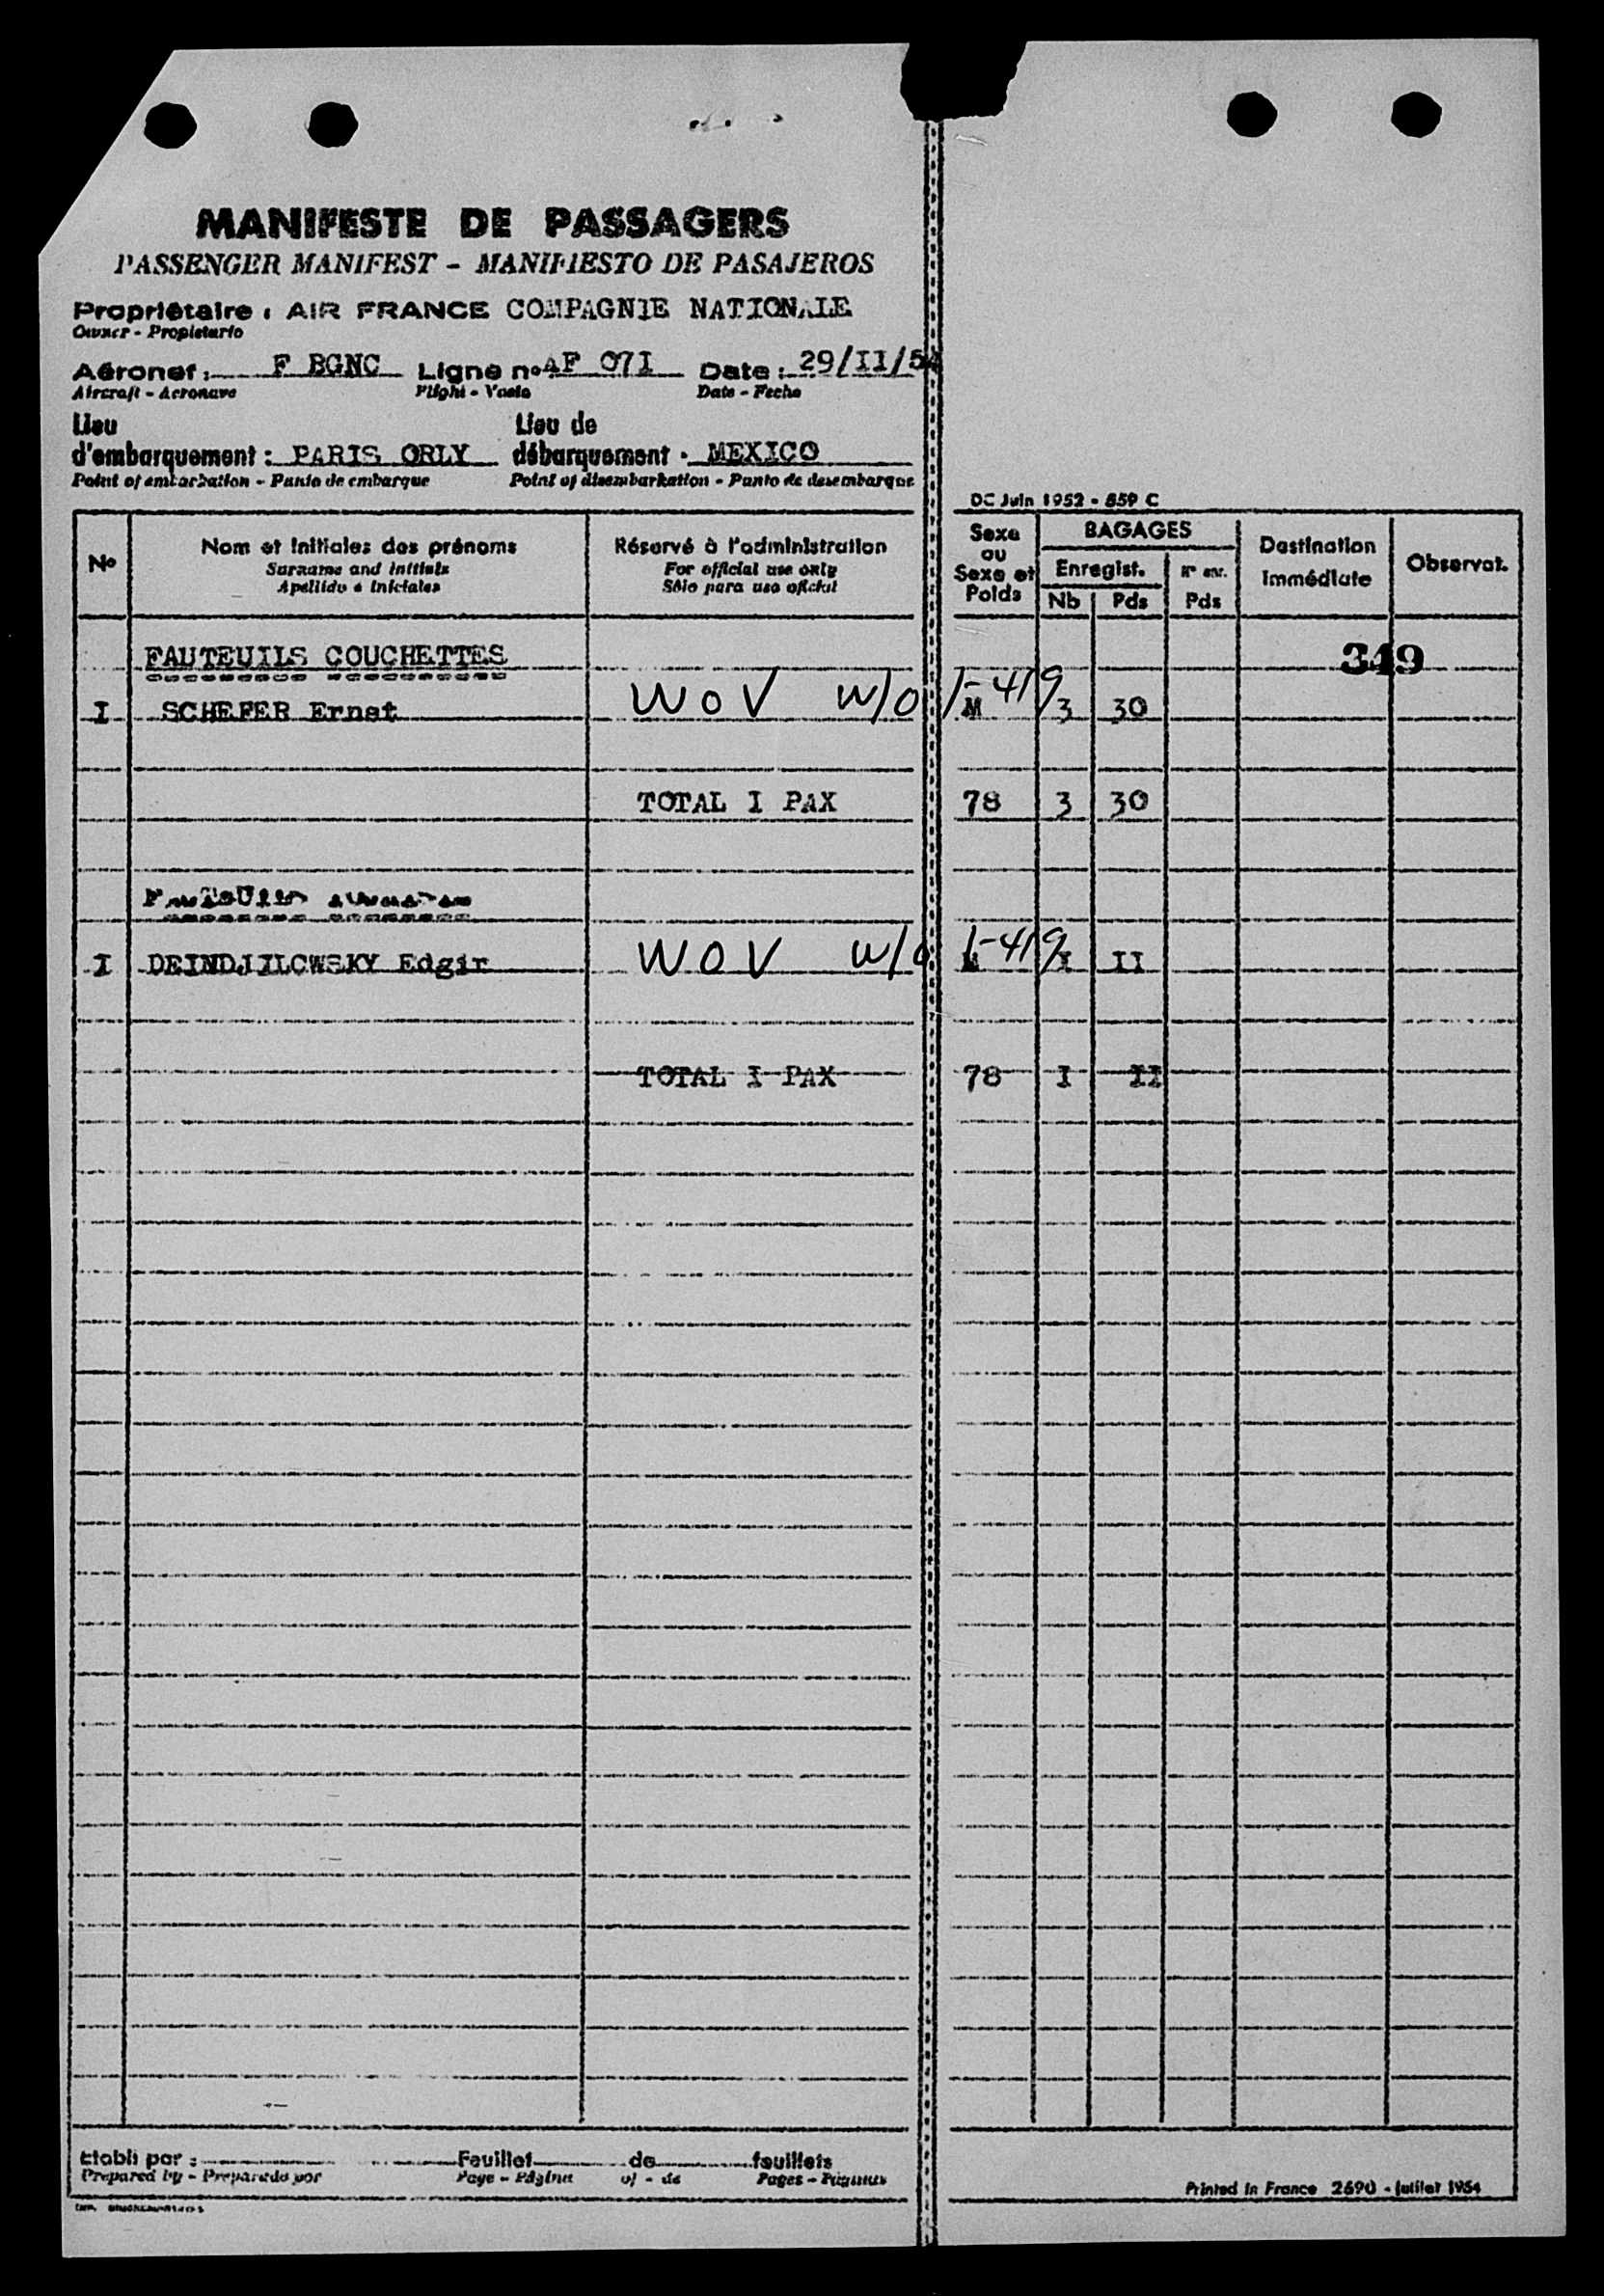 MANIFESTE DE PASSAGERS
PASSENGER MANIFEST - MANIFIESTO DE PASAJEROS
Propriétaire : AIR FRANCE COMPAGNIE NATIONALE
Owner - Propietario
Aéronef : F BGNC Ligne n° AF 07I Date : 29/II/54
Aircraft - Aeronave Flight - Date - Fecha
Lieu Lieu de
d'embarquement : PARIS ORLY débarquement : MEXICO
Point of embarkation - Punto de embarque Point of disembarkation - Punto de desembarque
DC Juin 1952 - 859 C
N° Nom et initiales des prénoms Réservé à l'administration Sexe ou Sexe et Poids BAGAGES Destination immédiate Observat.
Surname and initials For official use only Enregist. N° enr.
Apellido e iniciales Sólo para uso oficial Nb Pds Pds
FAUTEUILS COUCHETTES 349
I SCHEFER Ernst WOV W/O 1-419 M 3 30
TOTAL I PAX 78 3 30
I Edgir WOV W/O 1-419 I II
TOTAL I PAX 78 I II
Etabli par : Feuillet de feuillets
Prepared by - Preparado por Page - Página of - de Pages - Páginas
Printed in France 2690 - juillet 1954